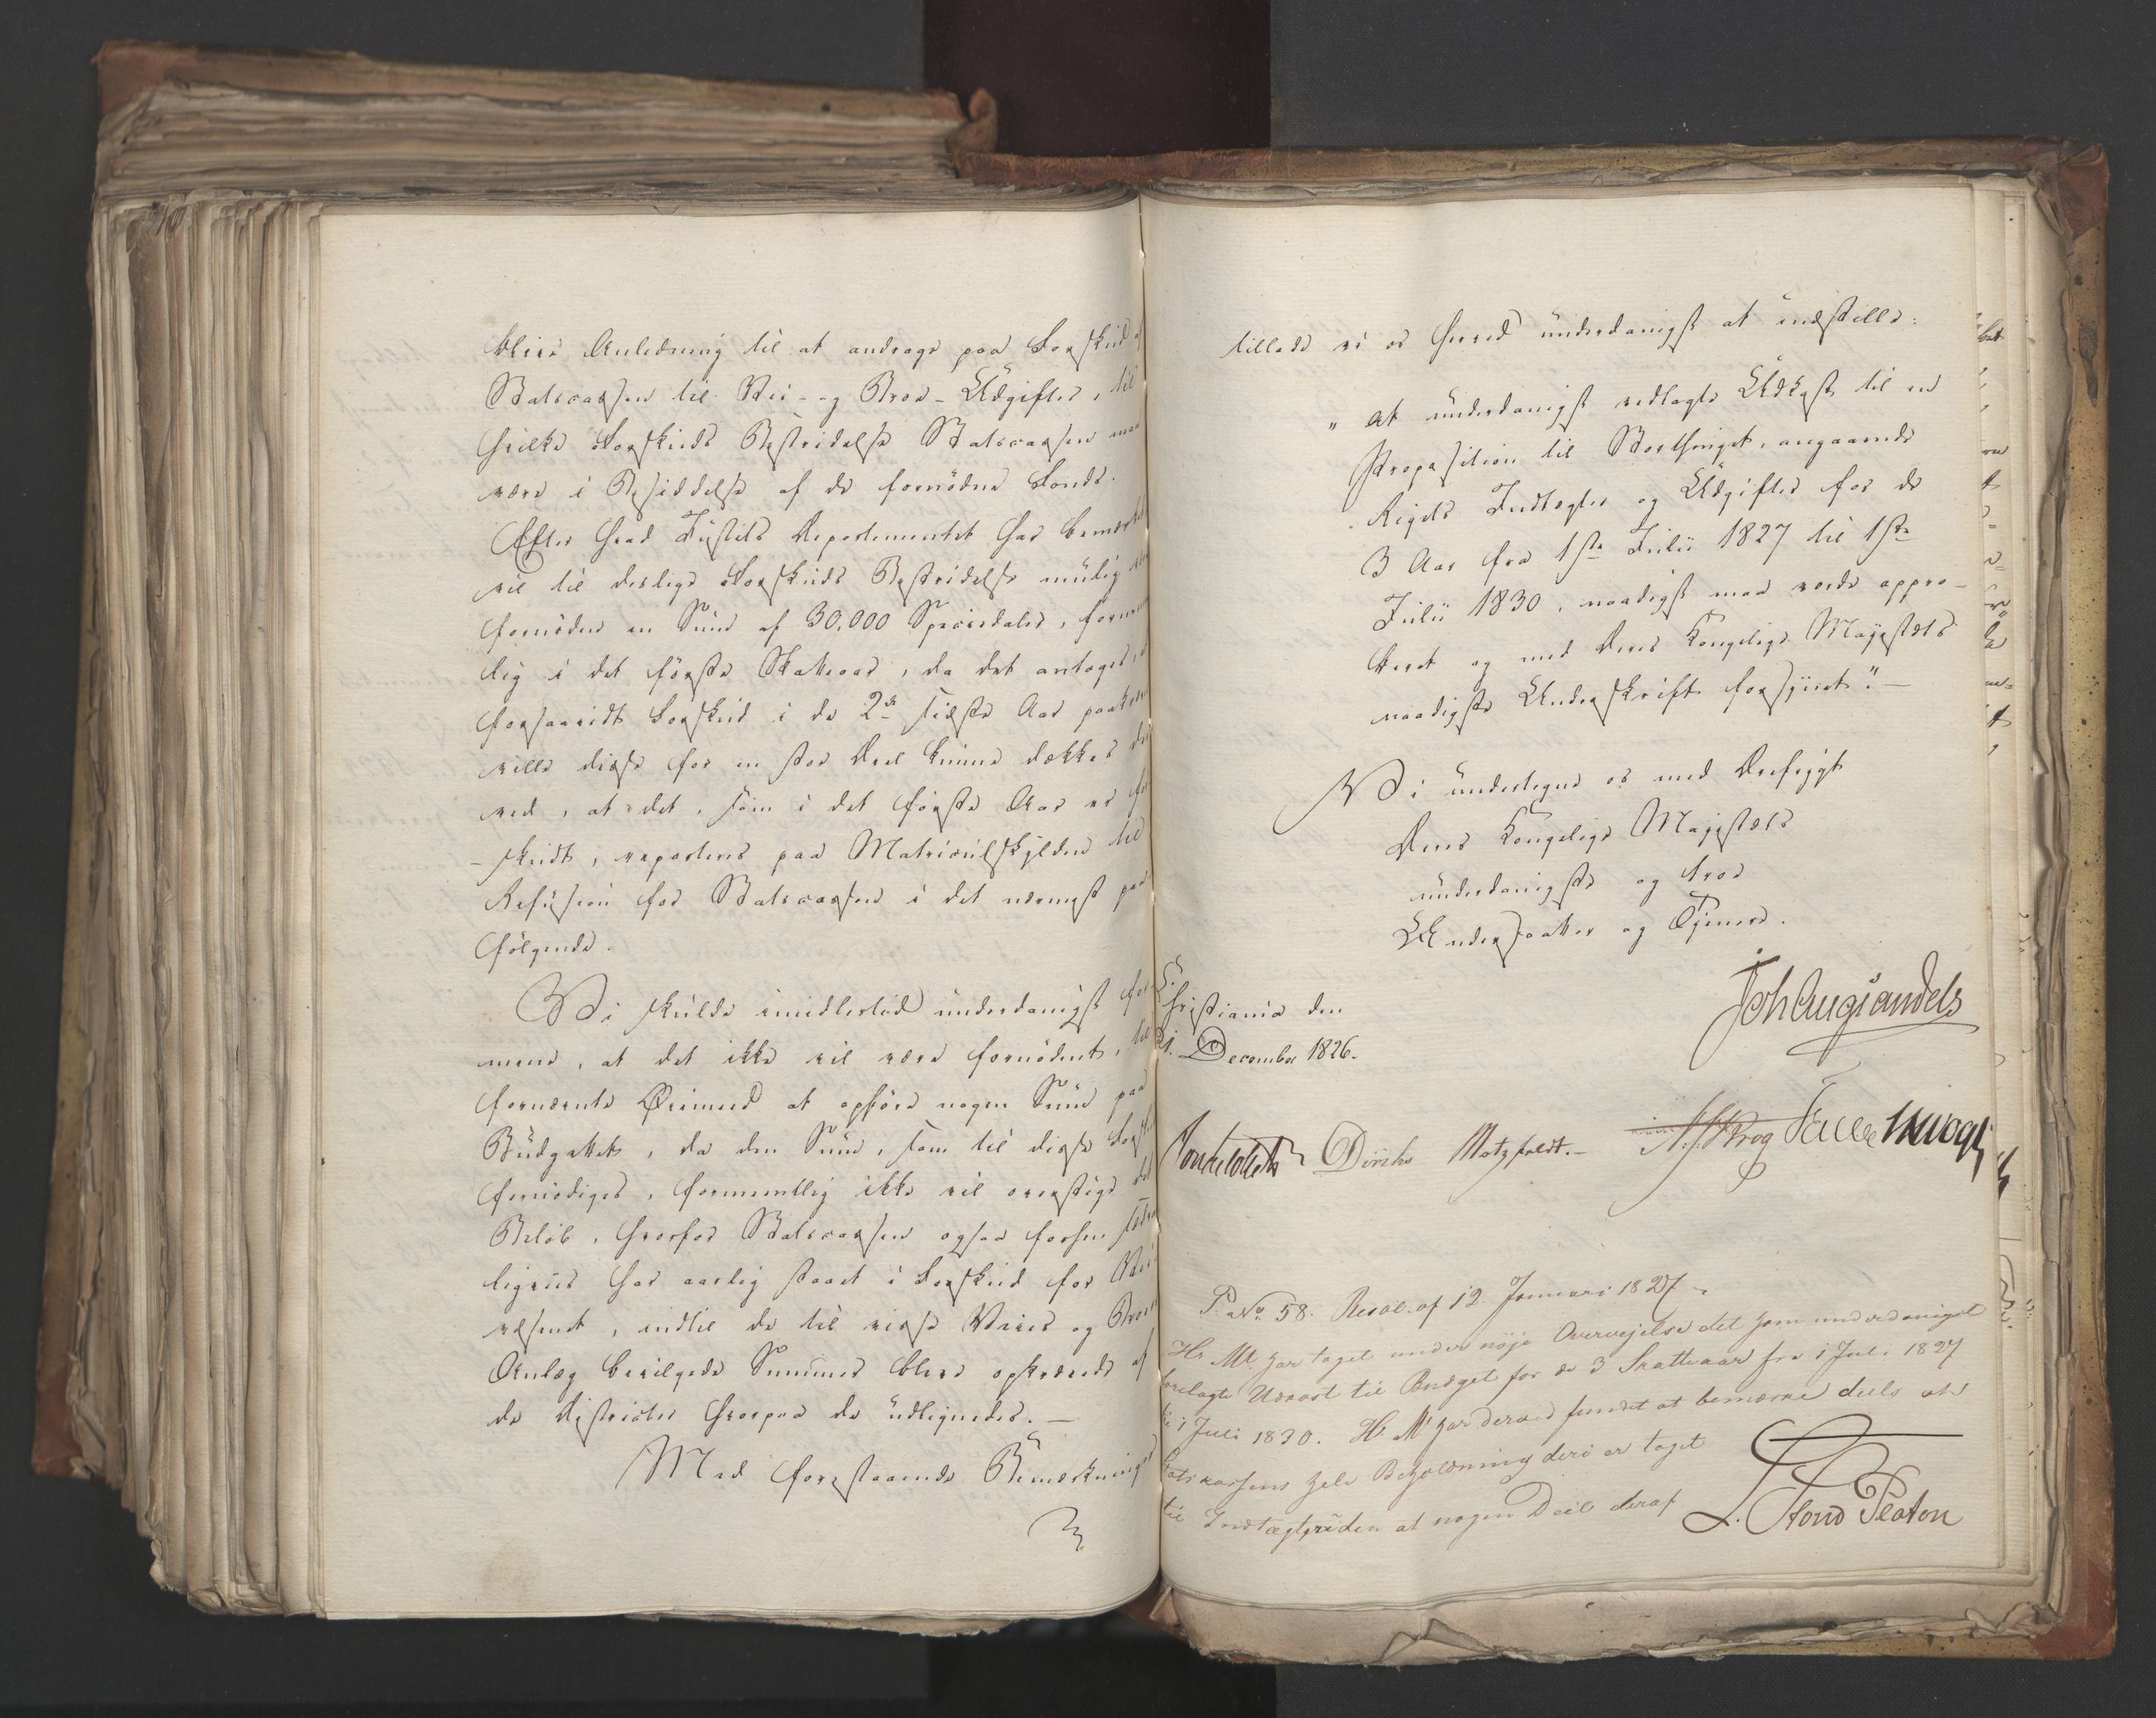 blive Anledning til at andrage paa Forskud af
Statscassen til Vei- og Broe-Udgifter, til
hvilke Forskuds Bestridelse Statscassen maa
være i Besiddelse af de fornödne Fonds.
Efter hvad Justits Departementet har bemærket
vil til deslige Forskuds Bestridelse mulig
fornödne en Sum af 30,000 Speciedaler,
lig i det förste Skatteaar, da det antages,
forsaavidt Forskud i de 2de sidste Aar
ville disse for en stor Deel kunne dækkes
ved, at det, som i det förste Aar er for-
-skudt, reparteres paa Matriculskylden til
Refusion for Statscassen i det nærmest paa
fölgende.
Vi skulde imidlertid underdanigst for
mene, at det ikke vil være fornödent, til
fornævnte Øiemed at opföre nogen Sum paa
Budgettet, da den Sum, som til disse Forskud
fornödiges, formeentlig ikke vil overstige det
Belöb, hvorfor Statscassen ogsaa forhen
ligviis har aarlig staaet i Forskud for Vei
væsenet, indtil de til visse Veies og Broers
Anlæg bevilgede Summer bleve opkrævede af
de Districter hvorpaa de udlignedes. —
Med foranstaaende Bemærkninger
tillade vi os herved underdanigst at indstille:
"at underdanigst vedlagte Udkast til en
Proposition til Storthinget, angaaende
Rigets Indtægter og Udgifter for de
3 Aar fra 1ste Julii 1827 til 1ste
Julii 1830, naadigst maa vorde appro-
beret og med Deres Kongelige Majestæts
naadigste Underskrift forsynet." —
Vi undertegne os med Dyb frygt
Deres Kongelige Majestæts
underdanigste og troe
Undersaatter og Tjenere.
Joh Aug Sandels
Christiania den
21. December 1826.
Collett Diriks Motzfeldt. — Krog Fasting
P. No. 58. Resol. af 12 Januari 1827
H. Mt. har taget under nöje Overvejelse det ham underdanigst
forelagte Udkast til Budget for de 3 Skatteaar fra 1 Juli 1827
til 1 Juli 1830. H. Mt har derved fundet at bemærke deels at
Statskassens hele Beholdning deri er taget
til Indtægt, uden at nogen Deel deraf
L. Stoud Platou